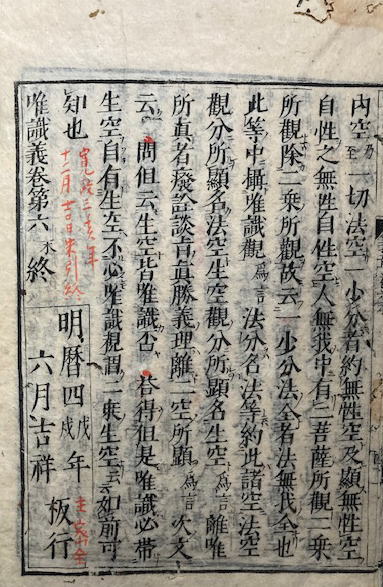 内空乃至一切法空一少分者約無性空及顯無性空
自性之無性自性空人無我中有三菩薩所觀二乘
所觀除二乘所觀故云一少分法全者法無我全也
此等中攝唯識觀爲言法分名法等約此諸空法空
觀分所顯名法空生空觀分所顯名生空爲言離唯
所眞者癈詮談旨眞勝義理離二空所顯爲言次文
云問但云生空皆唯識否答得但是唯識必帶
生空自有生空不必唯識觀謂二乘生空云云如前可
知也
唯識義卷第六本終
明曆四戊戌年
六月吉祥
板行